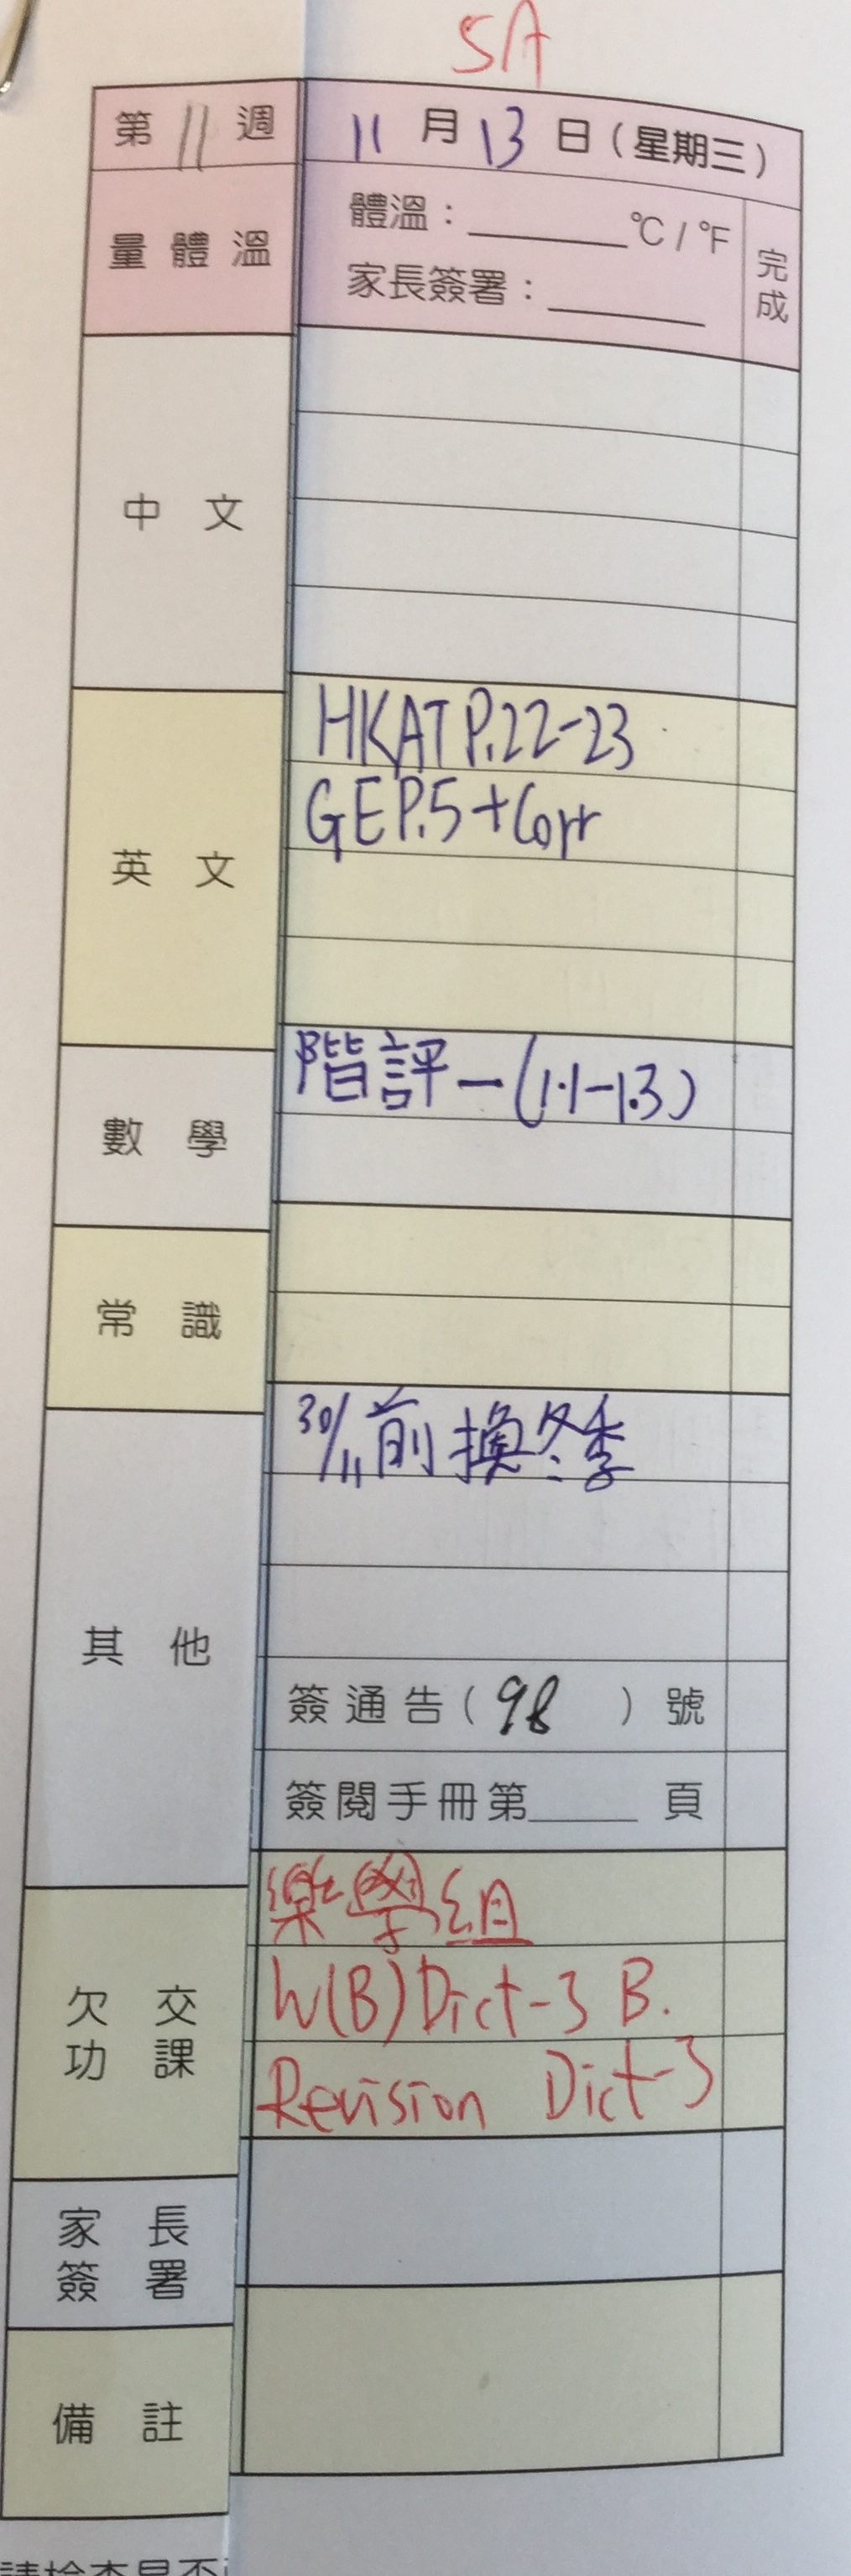 5A
第 11 週 11 月 13 日（星期三）
量體溫 體溫：______°C / °F 完成
家長簽署：______
中文
英文 HKAT P.22-23
GE P.5 + Corr
數學 階評一(1.1-1.3)
常識
其他 30/11前換冬季
簽通告（98）號
簽閱手冊第____頁
欠交功課 樂學組
W(B) Dict-3 B.
Revision Dict-3
家長簽署
備註